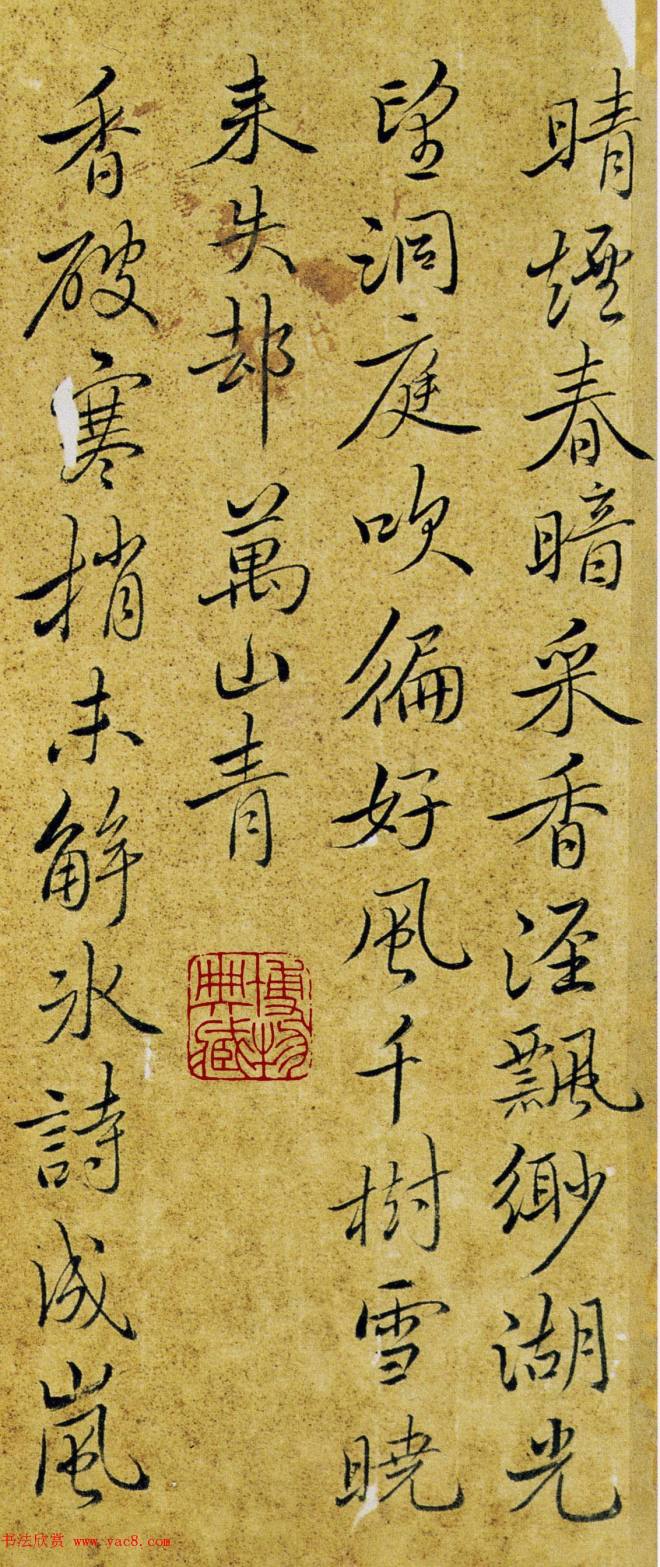 晴煙春暗采香涇飄緲湖光
望洞庭吹徧好風千樹雪曉
来失却萬山青
香破寒梢未解冰詩成嵐
博物
典藏
书法欣赏 www.yac8.com